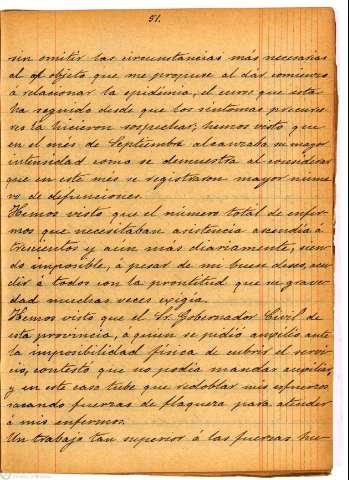 51.
sin omitir las circunstancias más necesarias
al objeto que me propuse al dar comienzo
á relacionar la epidemia, el curso que esta
ha seguido desde que los sintomas precurso-
res la hicieron sospechar; hemos visto que
en el mes de Septiembre alcanzaba su mayor
intensidad como se demuestra al considerar
que en este mes se registraron mayor nume-
ro de defunciones.
Hemos visto que el número total de enfer-
mos que necesitaban asistencia ascendia á
trescientos y aún más diariamente, sien-
do imposible, á pesar de mi buen deseo, acu-
dir á todos con la prontitud que su grave-
dad muchas veces exigia.
Hemos visto que el Sr. Gobernador Civil de
esta provincia, á quien se pidió auxilio ante
la imposibilidad fisica de cubrir el servi-
cio, contestó que no podia mandar auxilios,
y en este caso tube que redoblar mis esfuerzos
sacando fuerzas de flaqueza para atender
á mis enfermos.
Un trabajo tan superior á las fuerzas hu-